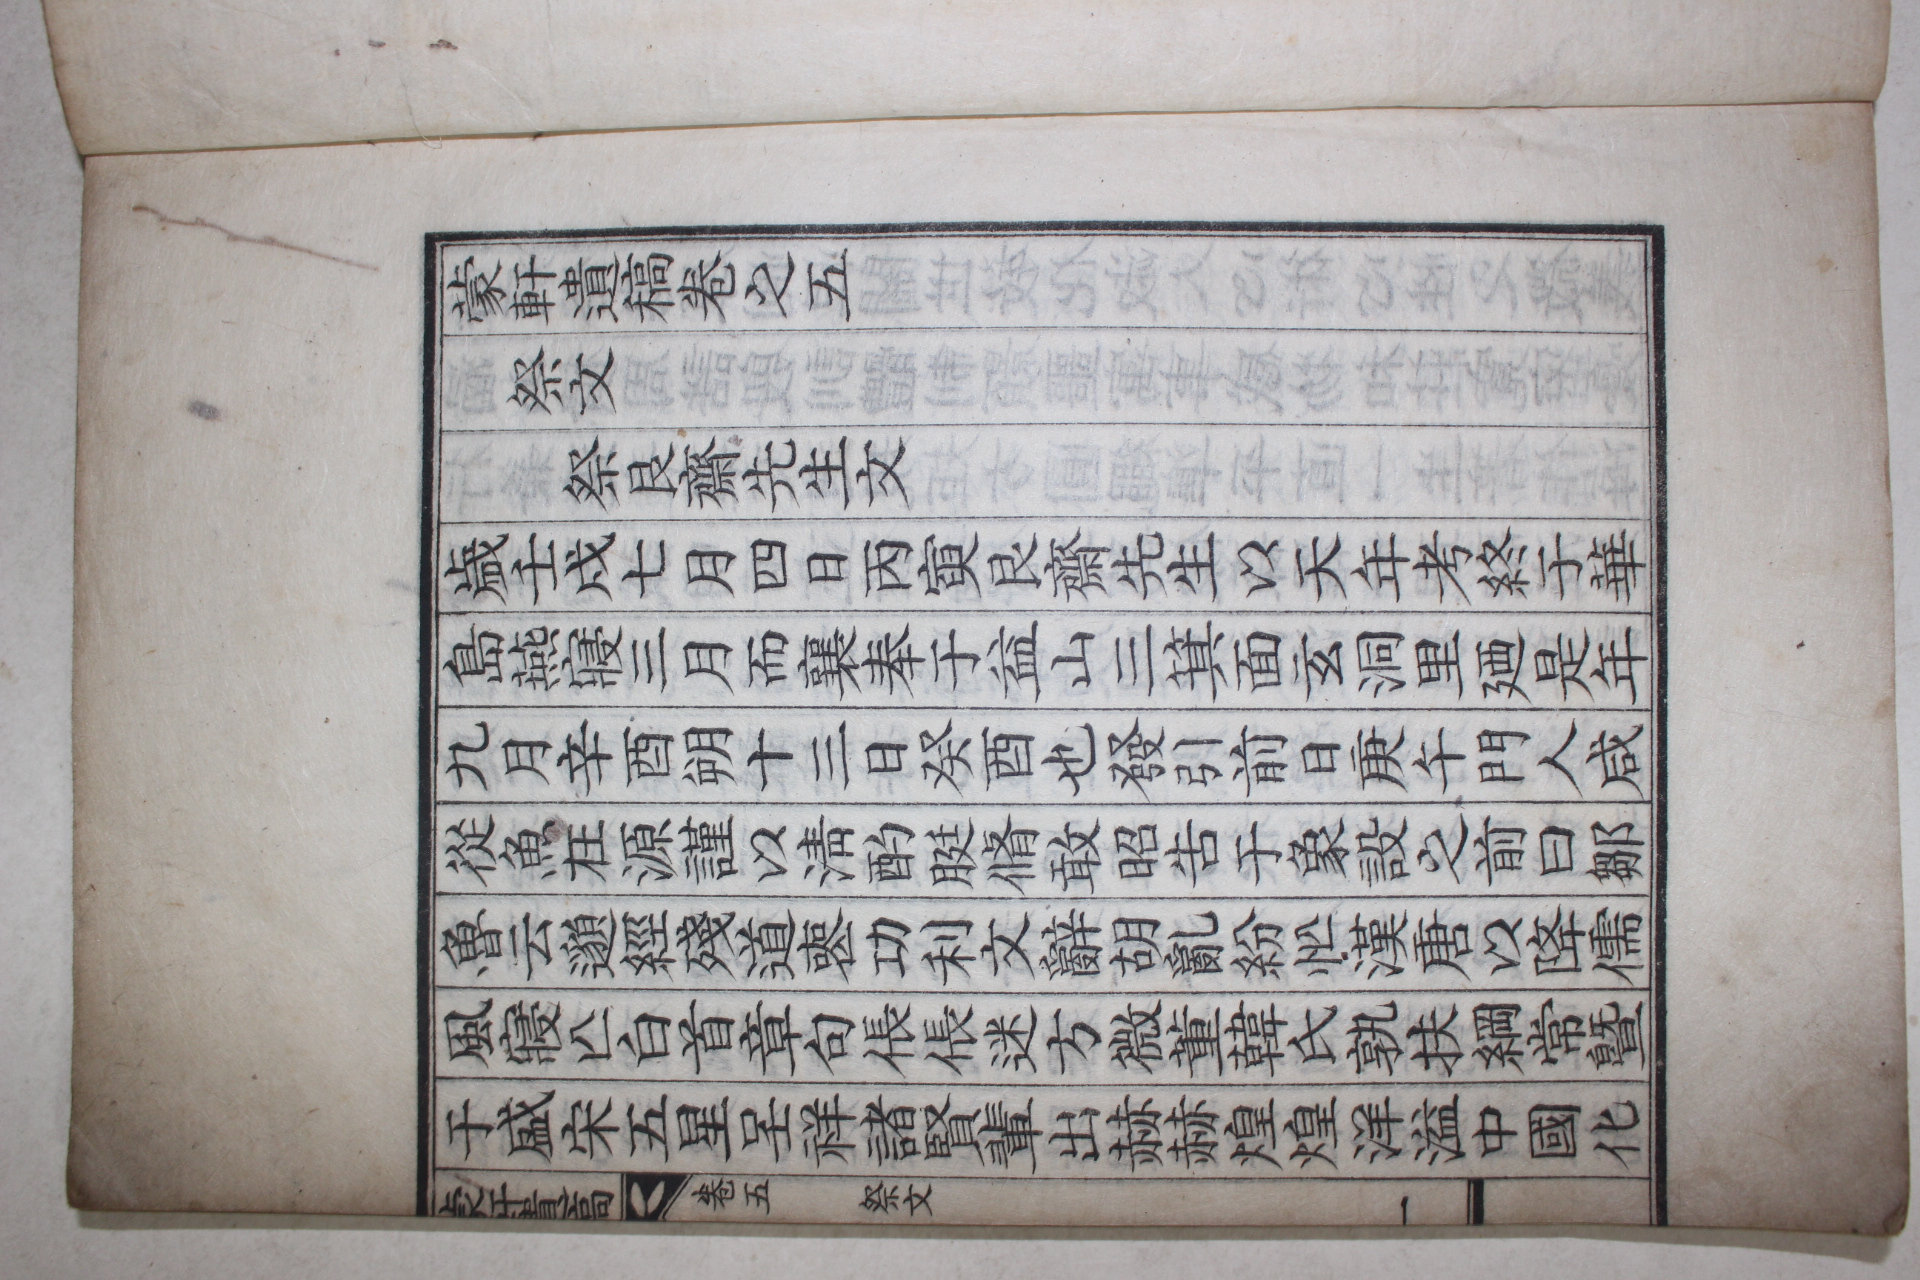 蒙軒遺稿卷之五
祭文
祭艮齋先生文
歲壬戌七月四日丙寅艮齋先生以天年考終于華
島燕寢三月而襄奉于益山三箕面玄洞里廼是年
九月辛酉朔十三日癸酉也發引前日庚午門人咸
從魚在源謹以淸酌脡脩敢昭告于象設之前曰鄒
魯云邈經殘道喪功利文辭胡亂紛怹漢唐以降儒
風寢亾白首章句倀倀迷方微董韓氏孰扶綱常曁
于盛宋五星呈祥諸賢輩出赫赫煌煌洋溢中國化
蒙軒遺稿 卷五 祭文 一